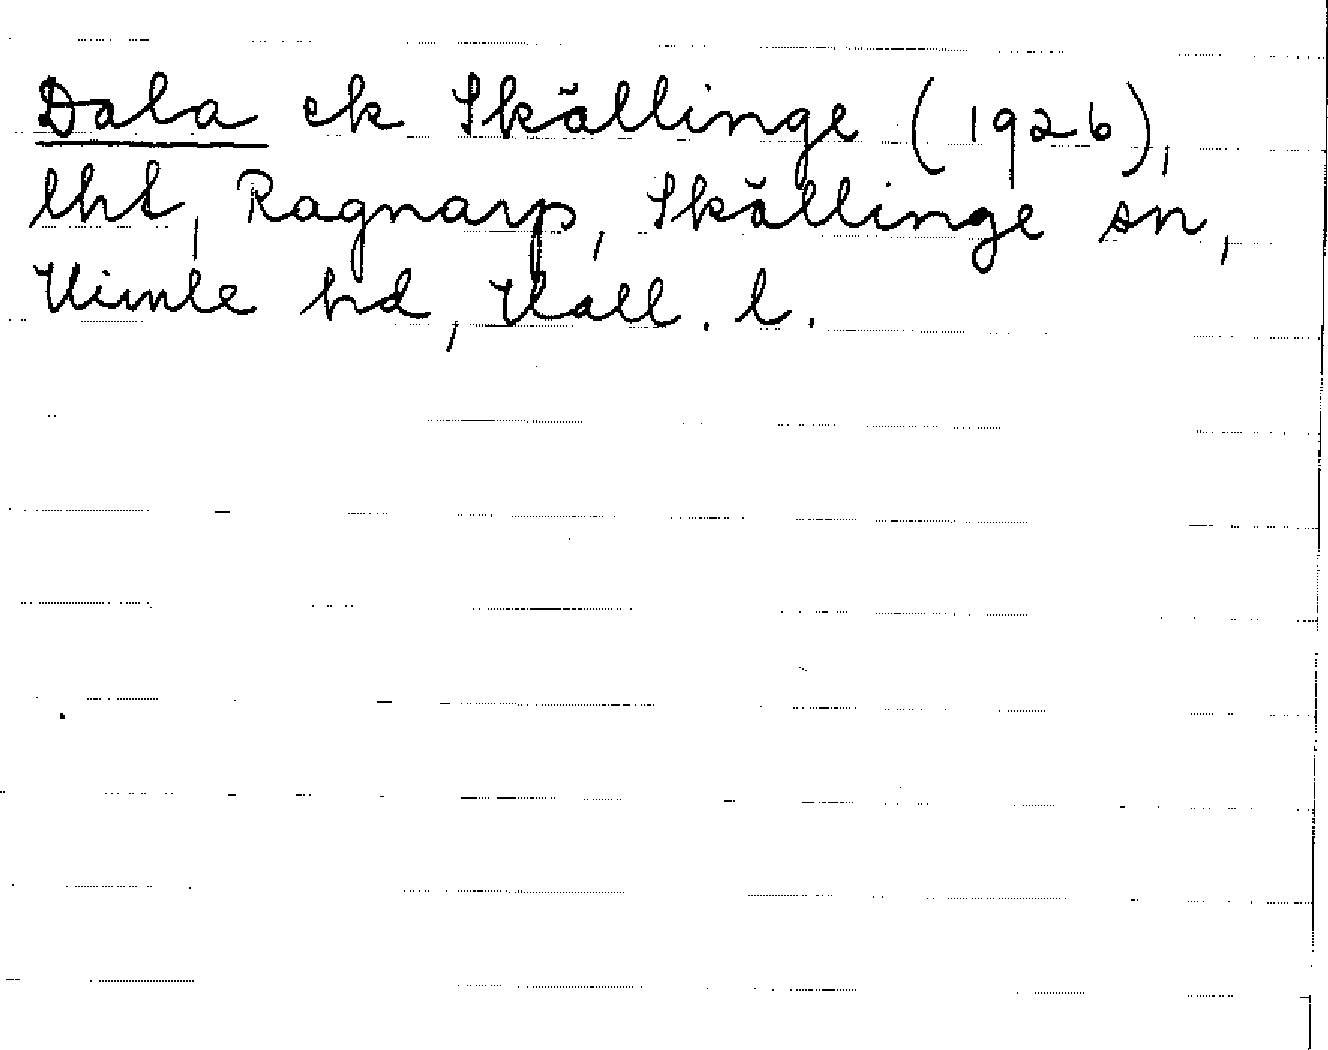 Dala ek Skällinge (1926),
lht, Ragnarp, Skällinge sn,
Himle hd, Hall. l.